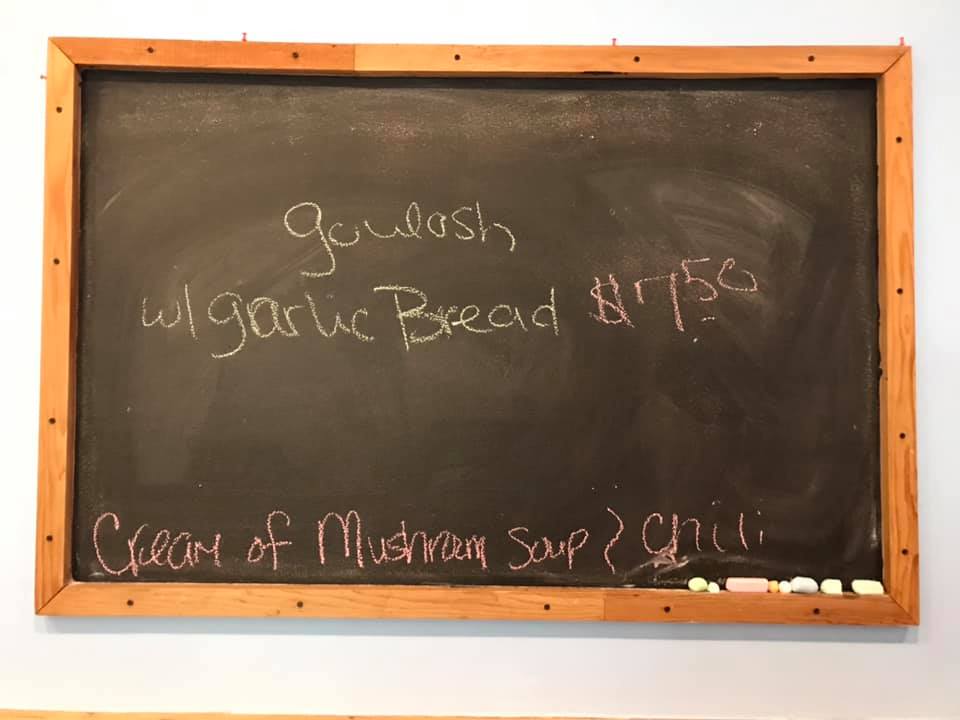 goulash
w/ garlic Bread $7.50
Cream of Mushroom Soup & Chili